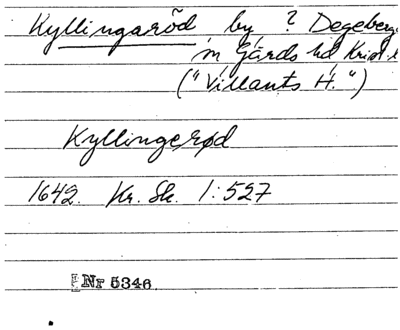 Kyllingaröd by ? Degeberga
sn Gärds hd Krist. l
("Villants H.")
Kyllingerød
1642. Kr. Sk. 1:527
Nr 5346